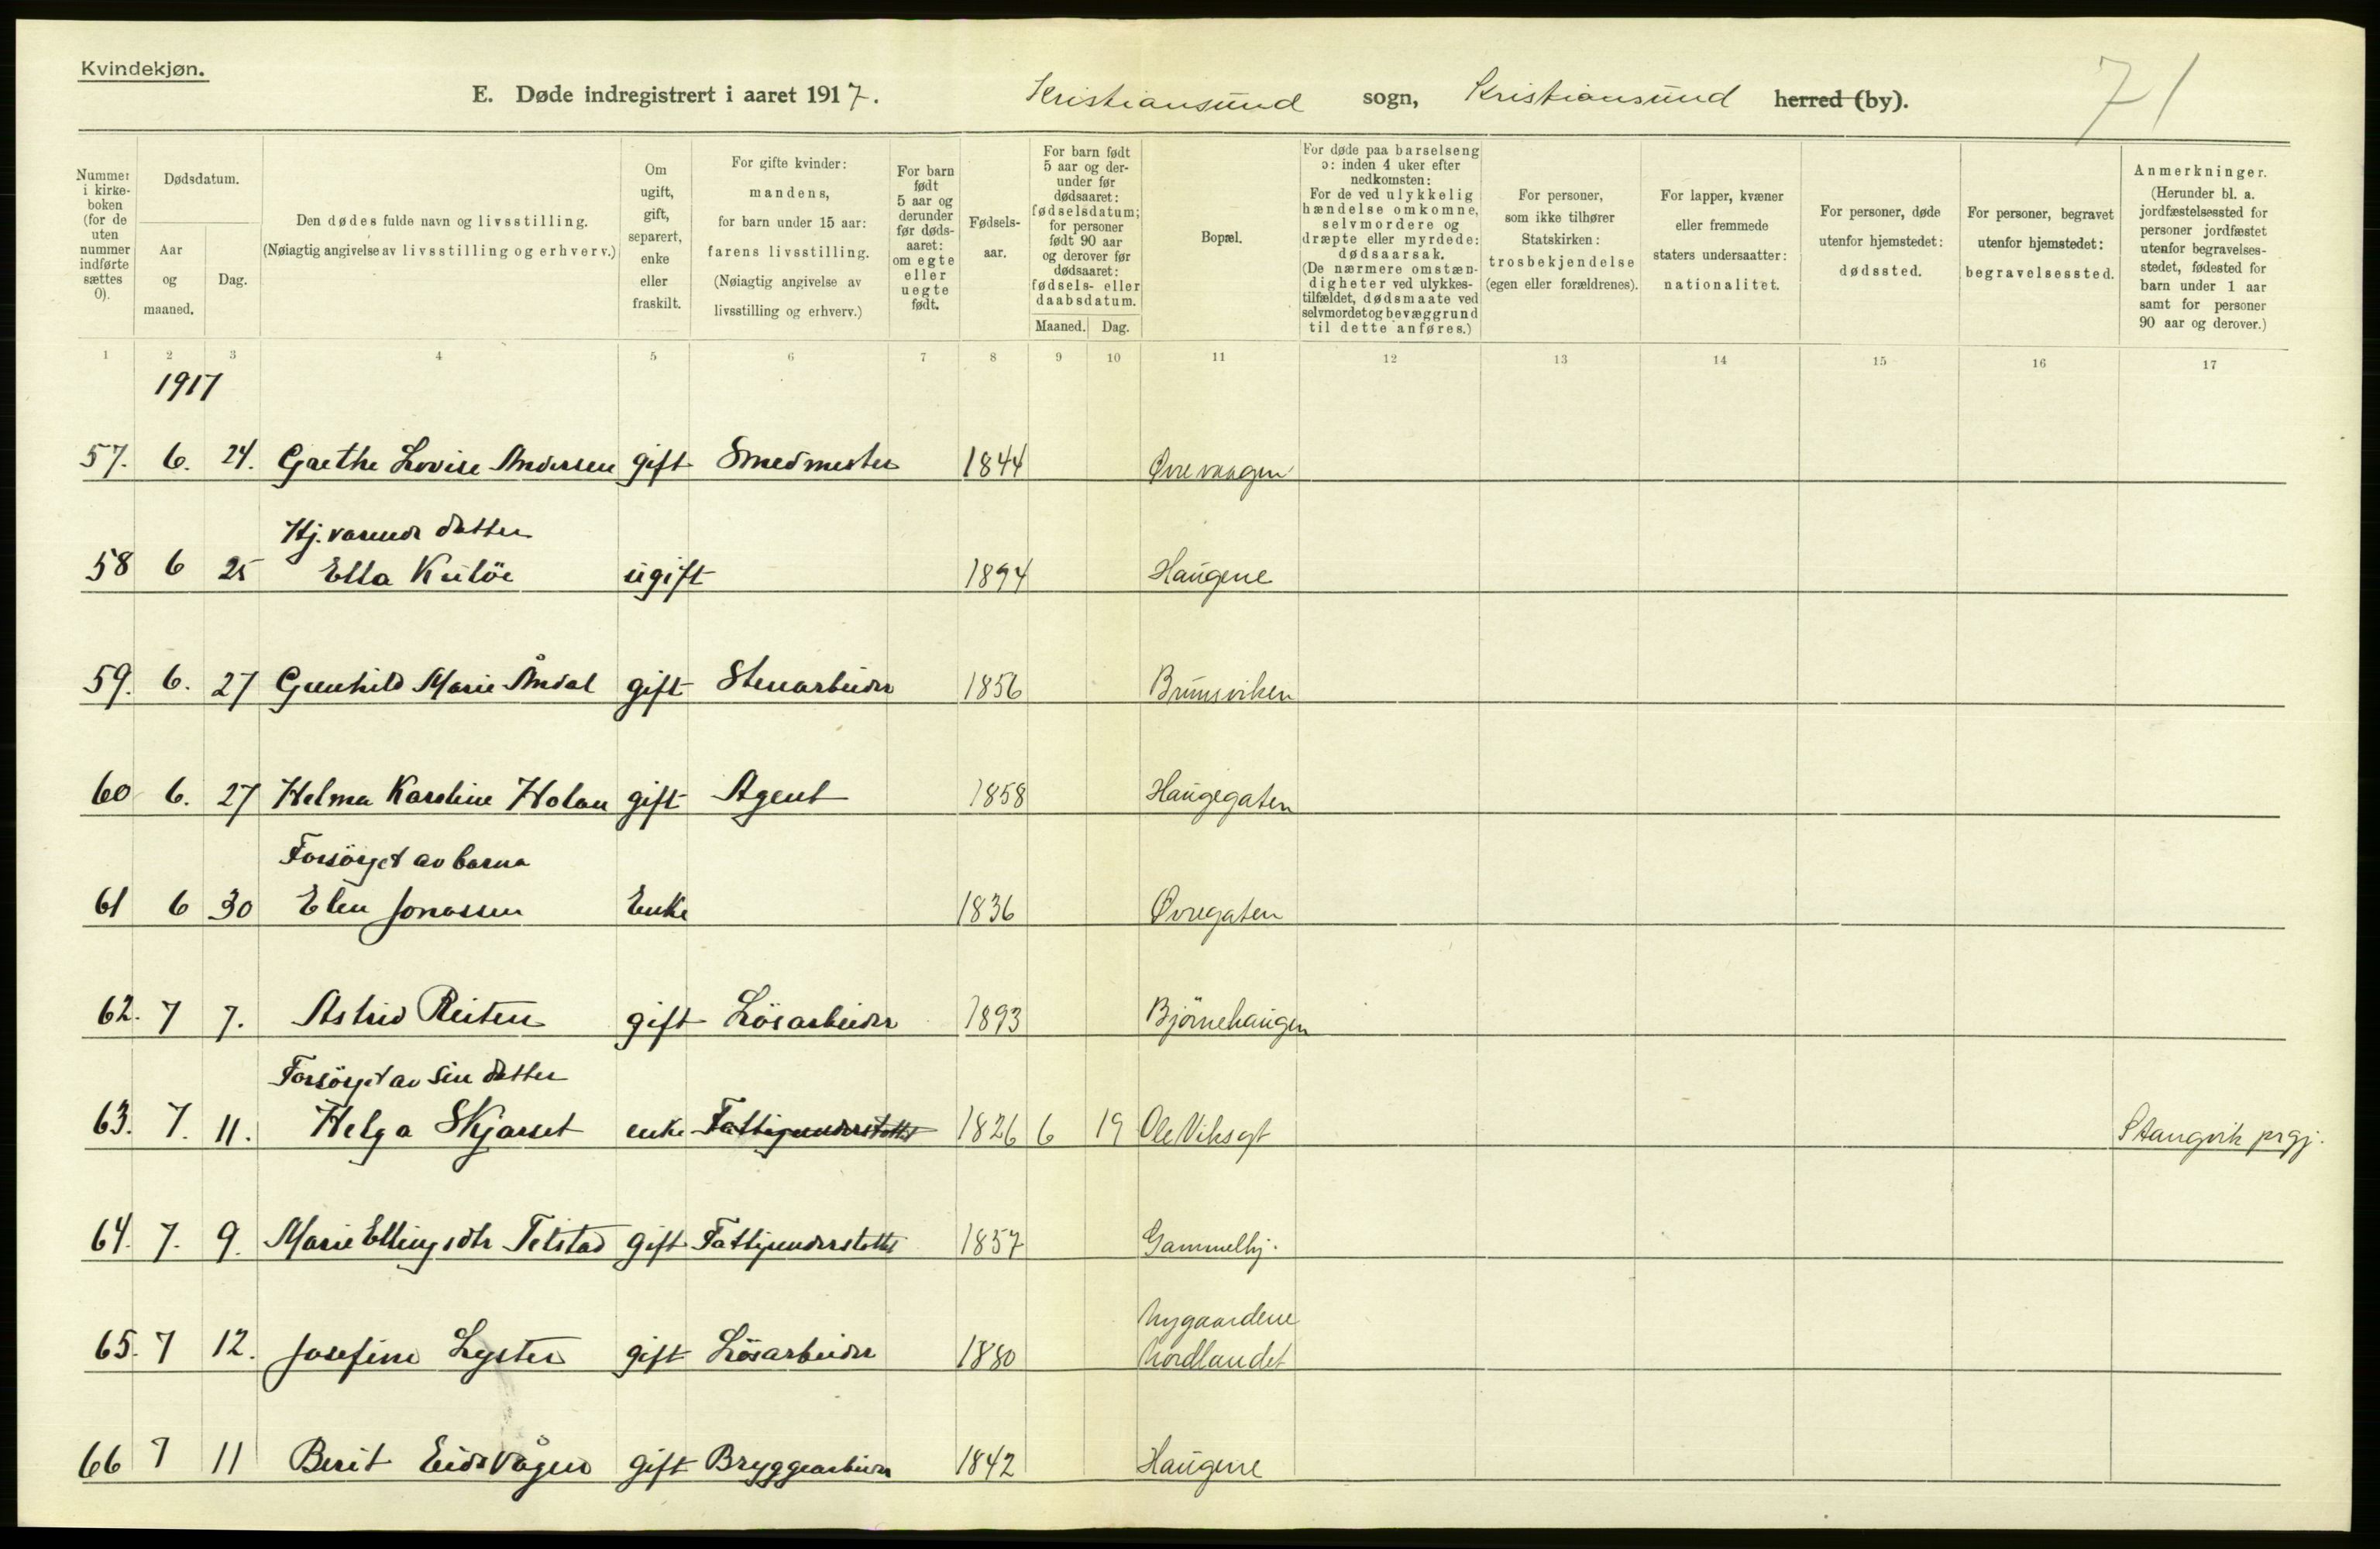 Kvindekjøn.
71
E. Døde indregistrert i aaret 1917. Kristiansund sogn, Kristiansund herred (by).
Nummer i kirkeboken (for de uten nummer indførte sættes 0).
Dødsdatum.
Aar og maaned.
Dag.
Den dødes fulde navn og livsstilling.
(Nøiagtig angivelse av livsstilling og erhverv.)
Om ugift, gift, separert, enke eller fraskilt.
For gifte kvinder: mandens, for barn under 15 aar: farens livsstilling.
(Nøiagtig angivelse av livsstilling og erhverv.)
For barn født 5 aar og derunder før dødsaaret: om egte eller uegte født.
Fødselsaar.
For barn født 5 aar og derunder før dødsaaret: fødselsdatum; for personer født 90 aar og derover før dødsaaret: fødsels- eller daabsdatum.
Maaned. Dag.
Bopæl.
For døde paa barselseng ɔ: inden 4 uker efter nedkomsten: For de ved ulykkelig hændelse omkomne, selvmordere og dræpte eller myrdede: dødsaarsak.
(De nærmere omstændigheter ved ulykkestilfældet, dødsmaate ved selvmordet og bevæggrund til dette anføres.)
For personer, som ikke tilhører Statskirken: trosbekjendelse (egen eller forældrenes).
For lapper, kvæner eller fremmede staters undersaatter: nationalitet.
For personer, døde utenfor hjemstedet: dødssted.
For personer, begravet utenfor hjemstedet: begravelsessted.
Anmerkninger.
(Herunder bl. a. jordfæstelsessted for personer jordfæstet utenfor begravelsesstedet, fødested for barn under 1 aar samt for personer 90 aar og derover.)
1 2 3 4 5 6 7 8 9 10 11 12 13 14 15 16 17
1917
57. 6. 24. Grethe Lovise Andersen gift Smedmester 1844 Øvre vaagen
Hj. værende datter
58 6 25 Ella Kulöe ugift 1894 Haugene
59. 6. 27 Gunhild Marie Åndal gift Stenarbeider 1856 Brunsviken
60 6. 27 Helma Karoline Holan gift Agent 1858 Haugegaten
Forsörget av barna
61 6 30 Elen Jonassen Enke 1836 Øvregaten
62. 7 7. Astrid Reiten gift Lösarbeider 1893 Björnehaugen
Forsörget av sin datter
63. 7. 11. Helga Skjærset enke Fattigunderstøttet 1826 6 19 Ole Viksgt Stangvik prgj.
64. 7. 9. Marie Ellingsdtr Tetstad gift Fattigunderstøttet 1857 Gammelhj.
Nygaardene
65. 7 12. Josefine Lyster gift Lösarbeider 1880 Nordlandet
66 7 11 Berit Eidsvågen gift Bryggearbeider 1842 Haugene